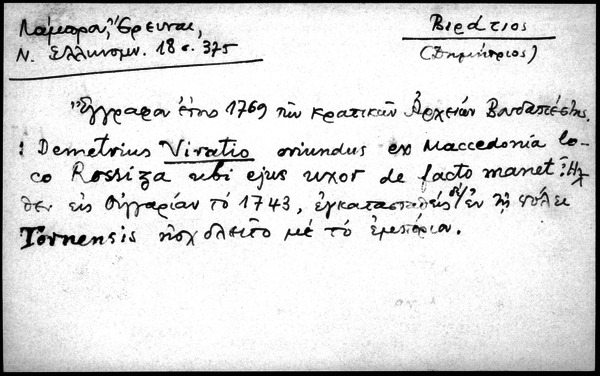 Λάμπρου, Ἔρευναι,
Ν. Ἑλληνομν. 18 σ. 375
Βιράτιος
(Δημήτριος)
Ἔγγραφον ἔτους 1769 τῶν κρατικῶν Ἀρχείων Βουδαπέστης.
: Demetrius Viratio oriundus ex Maccedonia lo-
co Rossiza ubi ejus uxor de facto manet: Ἦλ-
θεν εἰς Οὑγγαρίαν τό 1743, ἐγκατασταθείς δέ ἐν τῇ πόλει
Tornensis ἠσχολεῖτο μέ τό ἐμπόριον.